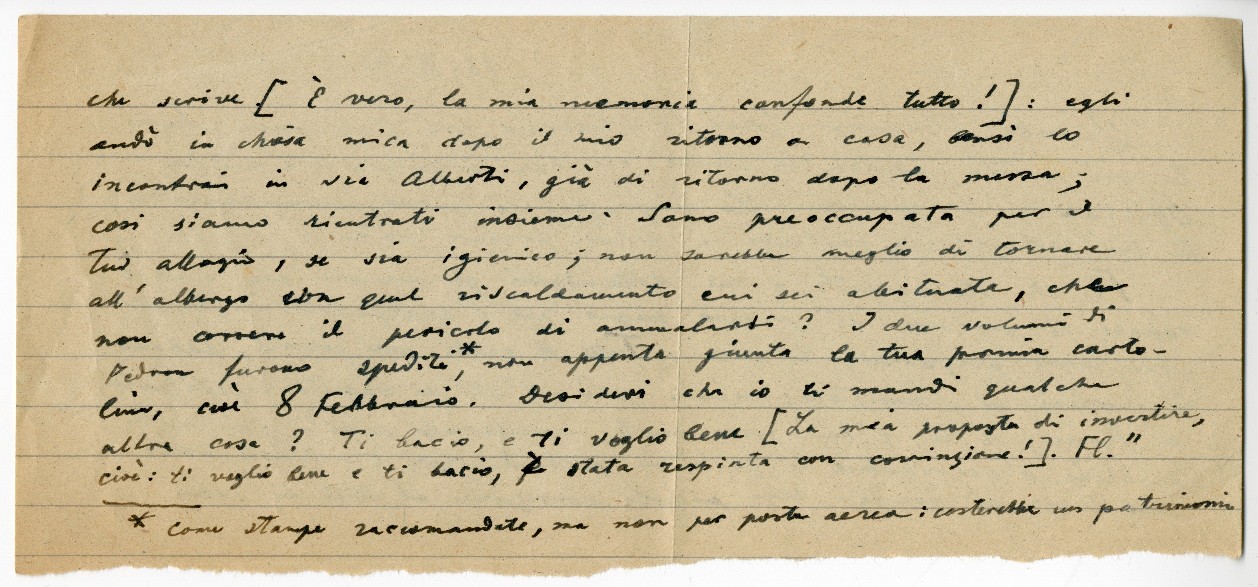 che scrive [ È vero, la mia memoria confonde tutto ! ] : egli
andò in chiesa mica dopo il mio ritorno a casa, bensì lo
incontrai in via Alberti, già di ritorno dopo la messa ;
così siamo rientrati insieme. Sono preoccupata per il
tuo alloggio, se sia igienico ; non sarebbe meglio di tornare
all' albergo con quel riscaldamento cui sei abituata, che
non correre il pericolo di ammalarsi ? I due volumi di
Pedron furono spediti*, non appena giunta la tua prima carto-
lina, cioè 8 Febbraio. Desideri che io ti mandi qualche
altra cosa ? Ti bacio, e ti voglio bene [ La mia proposta di invertire,
cioè : ti voglio bene e ti bacio, è stata respinta con convinzione ! ]. Fl."
* come stampe raccomandate, ma non per posta aerea : costerebbe un patrimonio